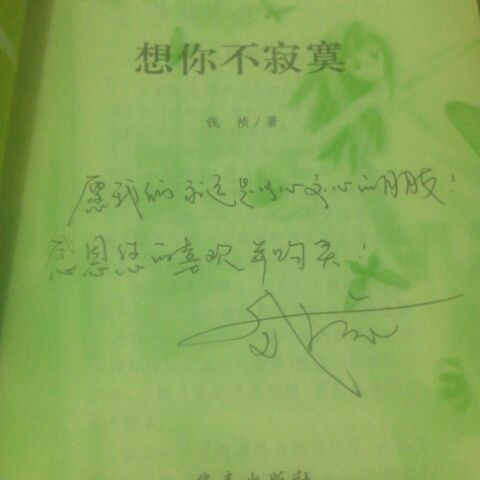 想你不寂寞
钱 祯/著
愿我们永远是以心交心的朋友!
感恩您的喜欢并购买!
出版社